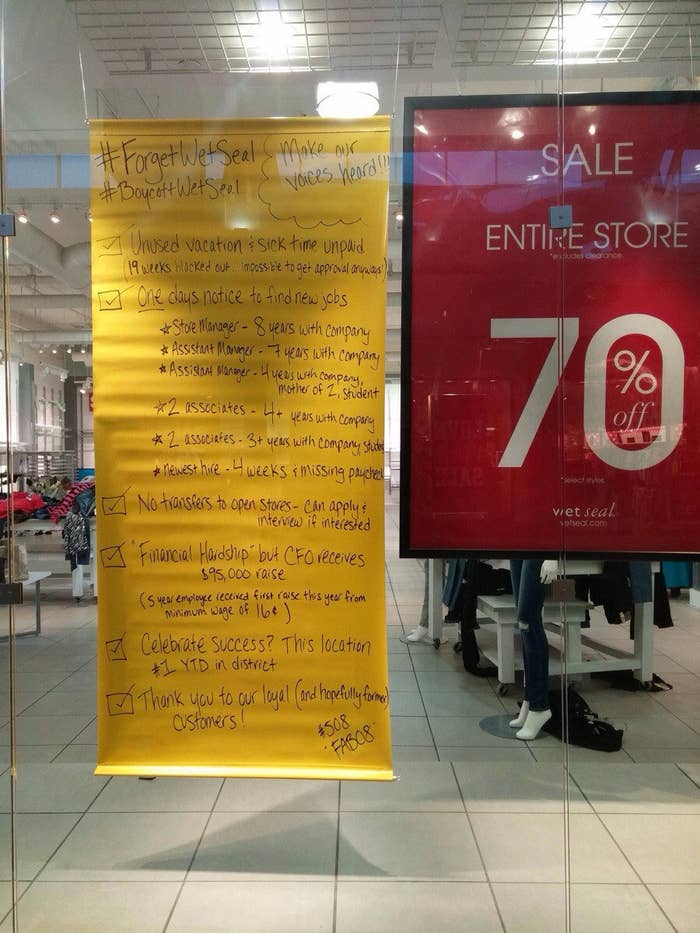 #ForgetWetSeal
#BoycottWetSeal
Make our
voices heard!!!
Unused vacation & sick time unpaid
(19 weeks blacked out... impossible to get approval anyways!)
One days notice to find new jobs
☆ Store Manager - 8 years with company
☆ Assistant Manager - 7 years with company
☆ Assistant Manager - 4 years with company,
mother of 2, student
☆ 2 associates - 4+ years with company
☆ 2 associates - 3+ years with company,
☆ newest hire - 4 weeks & missing paycheck
No transfers to open stores - can apply &
interview if interested
"Financial Hardship" but CFO receives
$95,000 raise
(5 year employee received first raise this year from
minimum wage of 16¢)
Celebrate Success? This location
#1 YTD in district
Thank you to our loyal (and hopefully former)
customers!
#508
FAB08
SALE
ENTIRE STORE
*excludes clearance
70% off
*select styles
wet seal.
wetseal.com